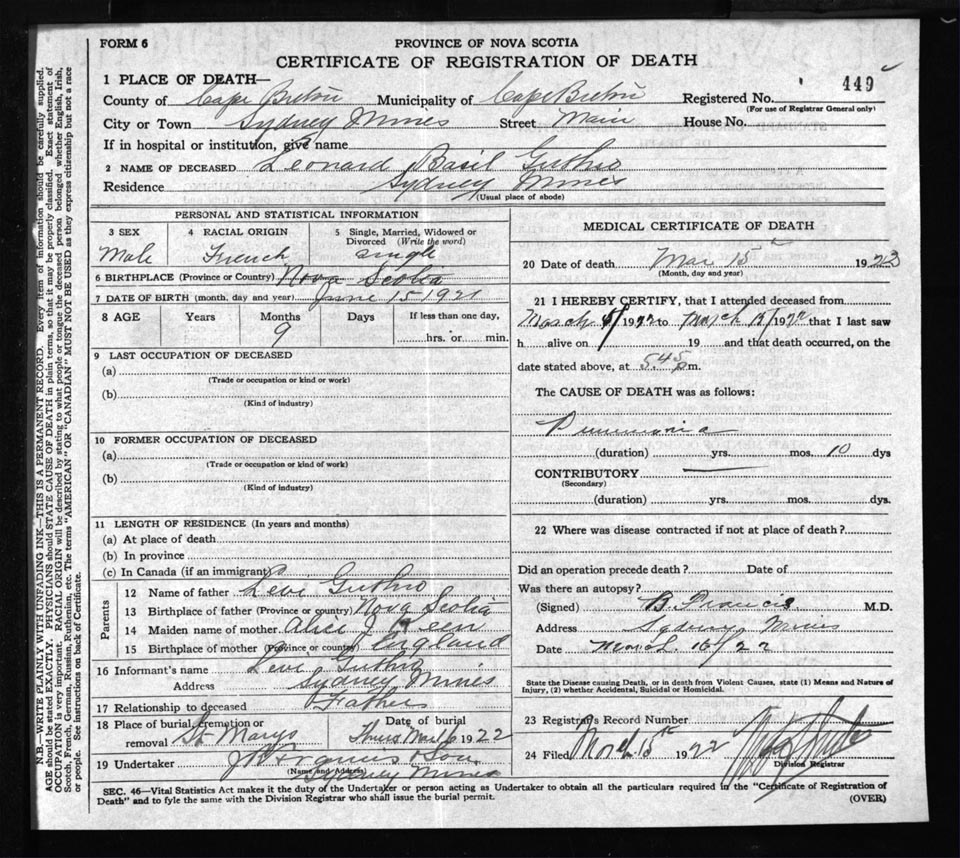 FORM 6
PROVINCE OF NOVA SCOTIA
CERTIFICATE OF REGISTRATION OF DEATH
1 PLACE OF DEATH—
County of Cape Breton Municipality of Cape Breton Registered No. 449
(For use of Registrar General only)
City or Town Sydney Mines Street Main House No.
If in hospital or institution, give name
2 NAME OF DECEASED Leonard Basil Guthro
Residence Sydney Mines
(Usual place of abode)
PERSONAL AND STATISTICAL INFORMATION
3 SEX 4 RACIAL ORIGIN 5 Single, Married, Widowed or Divorced (Write the word)
Male French single
6 BIRTHPLACE (Province or Country) Nova Scotia
7 DATE OF BIRTH (month, day and year) June 15 1921
8 AGE Years Months Days If less than one day,
9 hrs. or min.
9 LAST OCCUPATION OF DECEASED
(a)
(Trade or occupation or kind or work)
(b)
(Kind of industry)
10 FORMER OCCUPATION OF DECEASED
(a)
(Trade or occupation or kind of work)
(b)
(Kind of industry)
11 LENGTH OF RESIDENCE (In years and months)
(a) At place of death
(b) In province
(c) In Canada (if an immigrant)
Parents
12 Name of father Levi Guthro
13 Birthplace of father (Province or country) Nova Scotia
14 Maiden name of mother Alice J
15 Birthplace of mother (Province or country) England
16 Informant's name Levi Guthro
Address Sydney Mines
17 Relationship to deceased Father
18 Place of burial, cremation or removal St Marys Date of burial 1922
19 Undertaker & Son
(Name and Address) Sydney Mines
MEDICAL CERTIFICATE OF DEATH
20 Date of death Mar 15 1922
(Month, day and year)
21 I HEREBY CERTIFY, that I attended deceased from
March 1922 to March 1922 that I last saw
h alive on 19 and that death occurred, on the
date stated above, at 5.45 p.m.
The CAUSE OF DEATH was as follows:
Pneumonia
(duration) yrs. mos. 10 dys
CONTRIBUTORY
(Secondary)
(duration) yrs. mos. dys.
22 Where was disease contracted if not at place of death?
Did an operation precede death? Date of
Was there an autopsy?
(Signed) B. Francis M.D.
Address Sydney Mines
Date March 16/22
State the Disease causing Death, or in death from Violent Causes, state (1) Means and Nature of
Injury, (2) whether Accidental, Suicidal or Homicidal.
23 Registrar's Record Number
24 Filed March 15 1922
Division Registrar
SEC. 46—Vital Statistics Act makes it the duty of the Undertaker or person acting as Undertaker to obtain all the particulars required in the "Certificate of Registration of
Death" and to fyle the same with the Division Registrar who shall issue the burial permit.
(OVER)
N.B.—WRITE PLAINLY WITH UNFADING INK—THIS IS A PERMANENT RECORD. Every item of information should be carefully supplied.
AGE should be stated EXACTLY. PHYSICIANS should STATE CAUSE OF DEATH in plain terms, so that it may be properly classified. Exact statement of
OCCUPATION is very important. RACIAL ORIGIN will be described by stating to what people or tongue the deceased person belonged whether English, Irish,
Scotch, French, German, Russian, Ruthenian, etc. The terms "AMERICAN" OR "CANADIAN" MUST NOT BE USED as they express citizenship but not a race
or people. See instructions on back of Certificate.